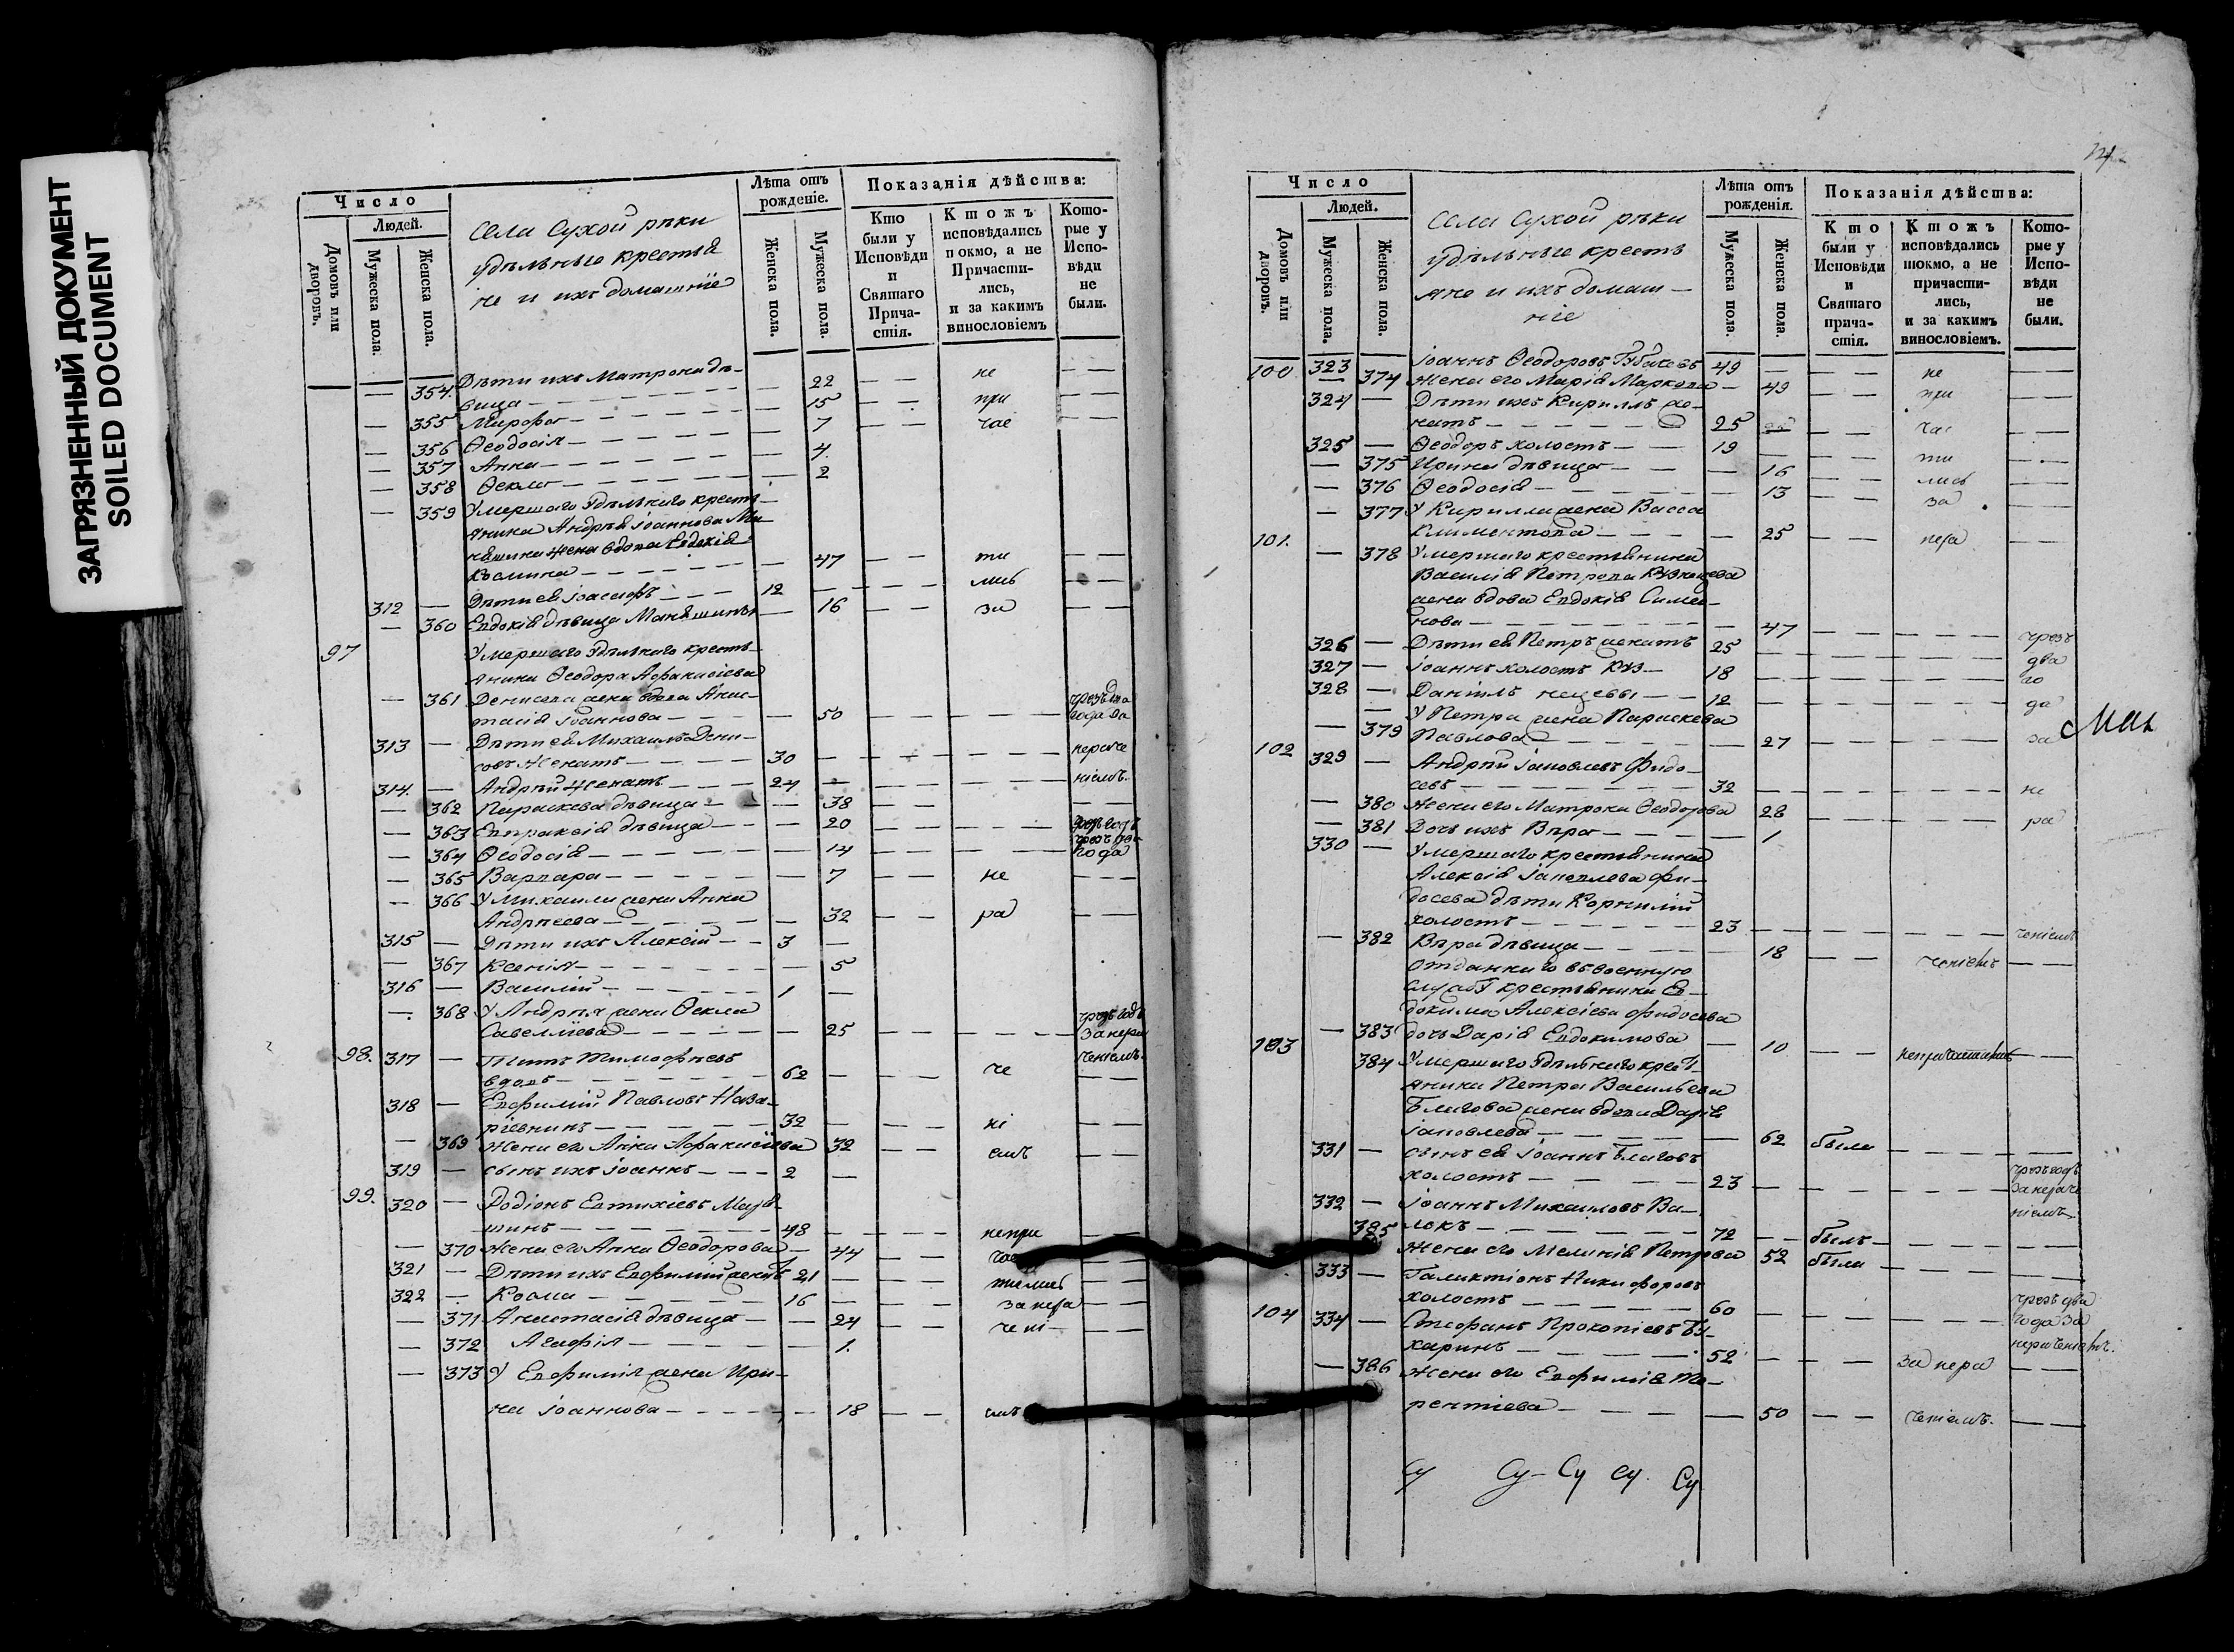 ЗАГРЯЗНЕННЫЙ ДОКУМЕНТ
SOILED DOCUMENT
Число
Людей.
Домовъ или дворовъ.
Мужеска пола.
Женска пола.
Села Сухой рѣки
удѣльные крестья
не и ихъ домашніе
Лѣта отъ рожденіе.
Женска пола.
Мужеска пола.
Показанія дѣйства:
Кто были у Исповѣди и Святаго Прича-стія.
Ктожъ исповѣдались покмо, а не Причасти-лись, и за какимъ винословіемъ
Кото-рые у Испо-вѣди не были.
— 354. Дѣти ихъ Матрона дѣ-
вица — — 22 — — не — —
— 355 Мирофа — — 15 — — при — —
— 356 Ѳеодосія — — 7 — — час — —
— 357 Анна — — 4
— 358 Ѳекла — — 2
— 359 Умершаго удѣльнаго кресть-
янина Андрѣя Іоаннова Ма-
няшина жена вдова Евдокія
Козмина — — 47 — ти — —
312 — Дѣти ея Іоасафъ — 12 — — лись — —
— 360 Евдокія дѣвица Маняшины — 16 — — за — —
97 Умершаго удѣльнаго кресть-
янина Ѳеодора Афанасіева
— 361 Денисова жена вдова Анас-
тасія Іоаннова — — 50 — — — чрезъ два года за
313 — Дѣти ея Михаилъ Дени-
совъ женатъ — 30 — — — нераче
314. — Андрей женатъ — 24 — — — ніемъ.
— 362 Параскева дѣвица — — 38 — —
— 363 Евпраксія дѣвица — — 20 — — — чрезъ годъ
— 364 Ѳеодосія — — 14 — — — года
— 365 Варвара — — 7 — — не — —
— 366 У Михаила жена Анна
Андрѣева — — 32 — — ра — —
315 — Дѣти ихъ Алексій — 3 —
— 367 Ксенія — — 5
316 — Василій — 1 —
— 368 У Андрея жена Ѳекла
Савеліева — — 25 — — — чрезъ годъ за нера
98. 317 — Титъ Тимофѣевъ ченіемъ.
вдовъ — 62 — — че — —
318 — Евфимій Павловъ Наза-
ріевнинъ — 32 — — ні — —
— 369 Жена его Анна Афанасіева 32 — — емъ — —
319 — сынъ ихъ Іоаннъ — 2 —
99. 320 — Родіонъ Евтихіевъ
шинъ — 48 — — непри — —
— 370 Жена его Анна Ѳеодорова — 44 — — час
321 — Дѣти ихъ Евфимій женатъ 21 — — тились — —
322 — Козма — 16 — — за нера — —
— 371 Анастасія дѣвица — — 24 — — чені — —
— 372 Агафія — — 1.
— 373 У Евфимія жена Ири-
на Іоаннова — — 18 — — емъ
Число
Людей.
Домовъ или дворовъ.
Мужеска пола.
Женска пола.
Села Сухой рѣки
удѣльные кресть
яне и ихъ домаш-
ніе
Лѣта отъ рожденія.
Мужеска пола.
Женска пола.
Показанія дѣйства:
Кто были у Исповѣди и Святаго прича-стія.
Ктожъ исповѣдались шокмо, а не причасти-лись, и за какимъ винословіемъ.
Кото-рые у Испо-вѣди не были.
100 323 Іоаннъ Ѳеодоровъ 49 — — не — —
— 374 Жена его Марія Маркова — 49 — — при — —
324 — Дѣти ихъ Кириллъ же-
натъ — 25 — — час — —
325 — Ѳеодоръ холостъ — 19 — — ти — —
— 375 Ирина дѣвица — — 16 — — лись — —
— 376 Ѳеодосія — — 13 — — за — —
— 377 У Кирилла жена Васса
Климентова — — 25 — — нера — —
101. — 378 Умершаго крестьянина
Василія Петрова Кузнецова
жена вдова Евдокія Симео-
нова — — 47 — — — чрезъ
326 — Дѣти ея Петръ женатъ 25 — — — два
327 — Іоаннъ холостъ Куз — 18 — — — го
328 — Даніилъ нецовы — 12 — — — да
— 379 У Петра жена Параскева
Павлова — — 27 — — — за
Мик
102 329 — Андрей Іаковлевъ Фидо-
севъ — 32 — — — не
— 380 Жена его Матрона Ѳеодорова 28 — — — ра
— 381 Дочь ихъ Вѣра — — 1
330 — Умершаго крестьянина
Алексія Іаковлева Фи-
досева дѣти Корнилій
холостъ — 23 — — — ченіемъ
— 382 Вѣра дѣвица — — 18 — — ченіемъ — —
Отданнаго въ военную
службу крестьянина Ев-
докима Алексіева Фидосева
— 383 дочь Дарія Евдокимова — 10 — —
103 384 Умершаго удѣльнаго крест-
янина Петра Васильева
Блигова жена вдова Дарія
Іаковлева — — 62 была — —
331 — сынъ ея Іоаннъ Блиговъ
холостъ — 23 — — — чрезъ годъ за нераче
332 — Іоаннъ Михаиловъ Ва- ніемъ
385 локъ — 72 — — былъ — —
Жена его Меланія Петрова 52 была — —
333 — Галактіонъ Никифоровъ
холостъ — 60 — — — чрезъ два
104 334 — Стефанъ Прокопіевъ Бу- года за
харинъ — 52 — — — нераченіемъ.
— 386 Жена его Евфимія Те- за нера
рентіева — — 50 — — ченіемъ. — —
Су Су — Су Су. Су